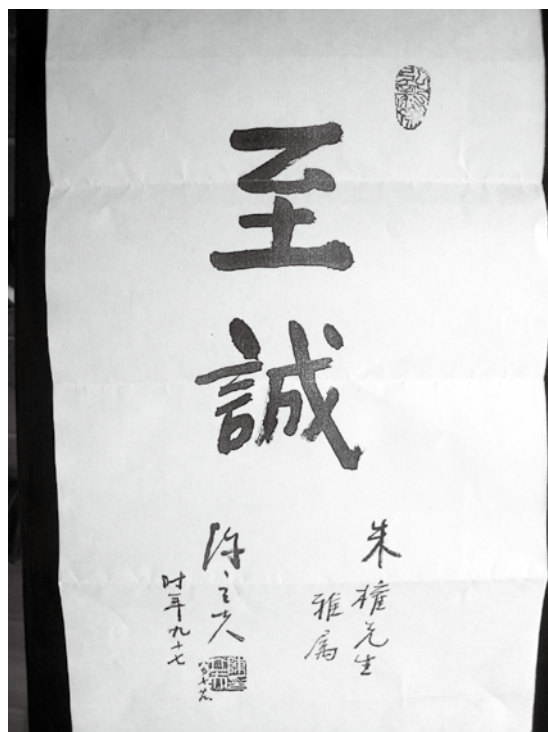 至誠
朱權先生
雅屬
陳立夫
时年九十七